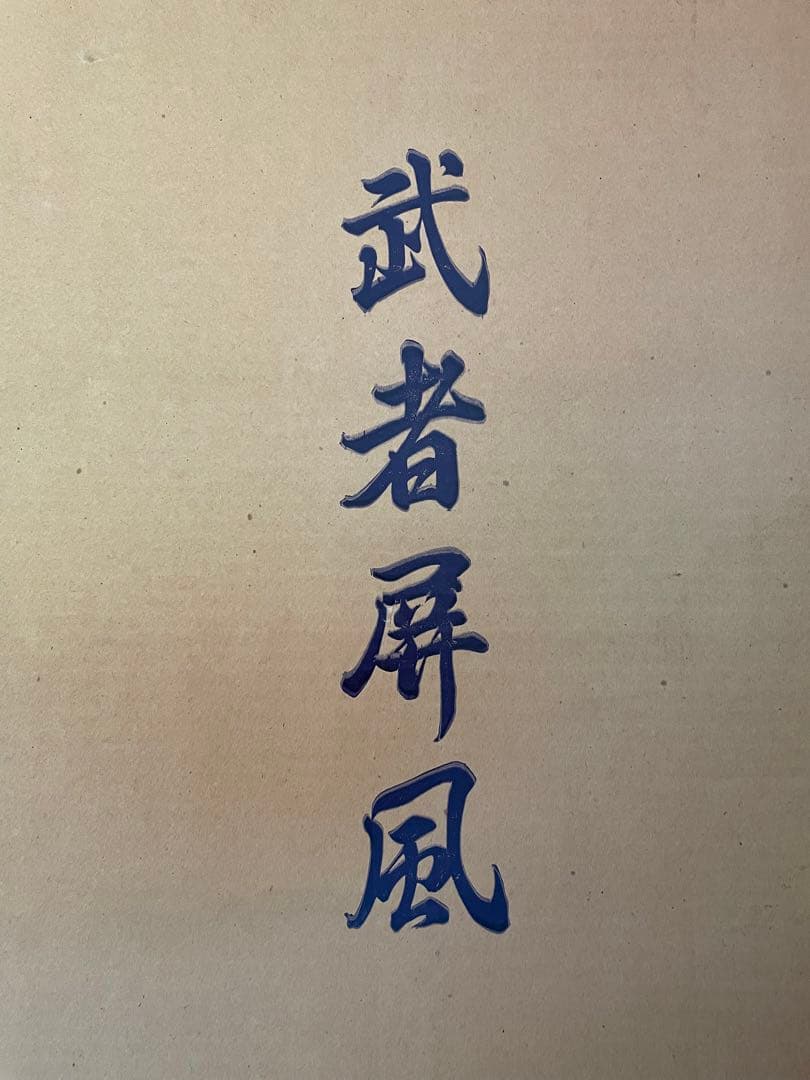 武者屏風